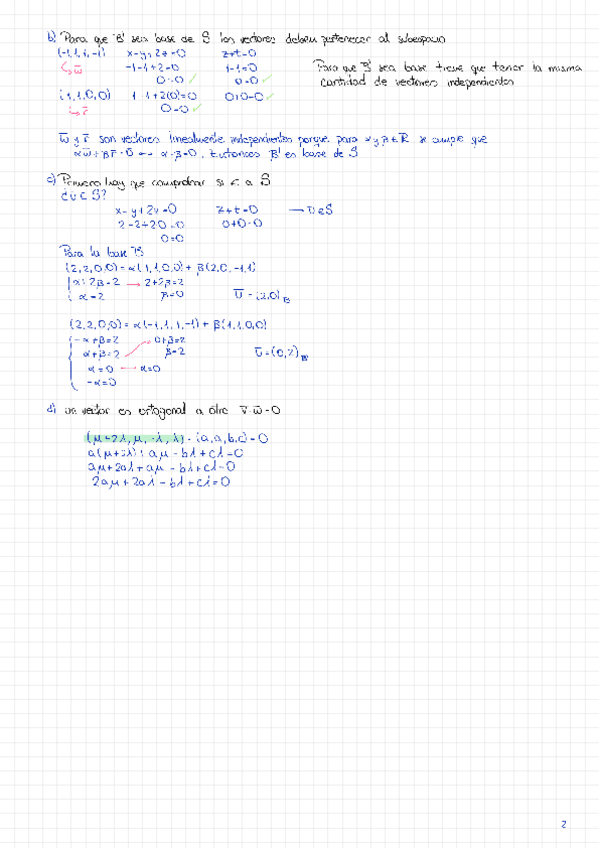 b) Para que B' sea base de S los vectores deben pertenecer al subespacio
(-1,1,1,-1) x-y+2z=0 z+t=0
↳ w̄ -1-1+2=0 1-1=0
0=0 ✓ 0=0 ✓
(1,1,0,0) 1-1+2(0)=0 0+0=0 ✓
↳ r̄ 0=0 ✓
Para que B' sea base tiene que tener la misma
cantidad de vectores independientes
w̄ y r̄ son vectores linealmente independientes porque para α y β ∈ R se cumple que
αw̄+βr̄=0̄ ↔ α=β=0. Entonces B' es base de S
c) Primero hay que comprobar si ∈ a S
¿U ⊂ S?
x-y+2v=0 z+t=0 → ū∈S
2-2+2·0=0 0+0=0
0=0
Para la base B
(2,2,0,0)=α(1,1,0,0)+β(2,0,-1,1)
α+2β=2 → 2+2β=2
α=2 β=0 ū=(2,0)B
(2,2,0,0)=α(-1,1,1,-1)+β(1,1,0,0)
-α+β=2 0+β=2
α+β=2 β=2 ū=(0,2)B'
α=0 → α=0
-α=0
d) un vector es ortogonal a otro v̄·w̄=0
(μ+2λ,μ,-λ,λ)·(a,a,b,c)=0
a(μ+2λ)+aμ-bλ+cλ=0
aμ+2aλ+aμ-bλ+cλ=0
2aμ+2aλ-bλ+cλ=0
2